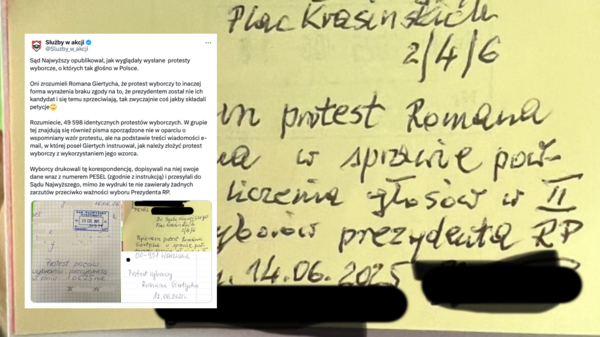 Służby w akcji
@Sluzby_w_akcji
Sąd Najwyższy opublikował, jak wyglądały wysłane protesty
wyborcze, o których tak głośno w Polsce.
Oni zrozumieli Romana Giertycha, że protest wyborczy to inaczej
forma wyrażenia braku zgody na to, że prezydentem został nie ich
kandydat i się temu sprzeciwiają, tak zwyczajnie coś jakby składali
petycje
Rozumiecie, 49 598 identycznych protestów wyborczych. W grupie
tej znajdują się również pisma sporządzone nie w oparciu o
wspomniany wzór protestu, ale na podstawie treści wiadomości e-
mail, w której poseł Giertych instruował, jak należy złożyć protest
wyborczy z wykorzystaniem jego wzorca.
Wyborcy drukowali tę korespondencję, dopisywali na niej swoje
dane wraz z numerem PESEL (zgodnie z instrukcją) i przesyłali do
Sądu Najwyższego, mimo że wydruki te nie zawierały żadnych
zarzutów przeciwko ważności wyboru Prezydenta RP.
PESEL
2/4/6
00-951 Warszawa
Protest wyborczy
Romana Giertycha
12.06.2025
Plac Krasińskich
2/4/6
protest Romana
w sprawie pow-
liczenia głosów w II
wyborów prezydenta RP
14.06.2025